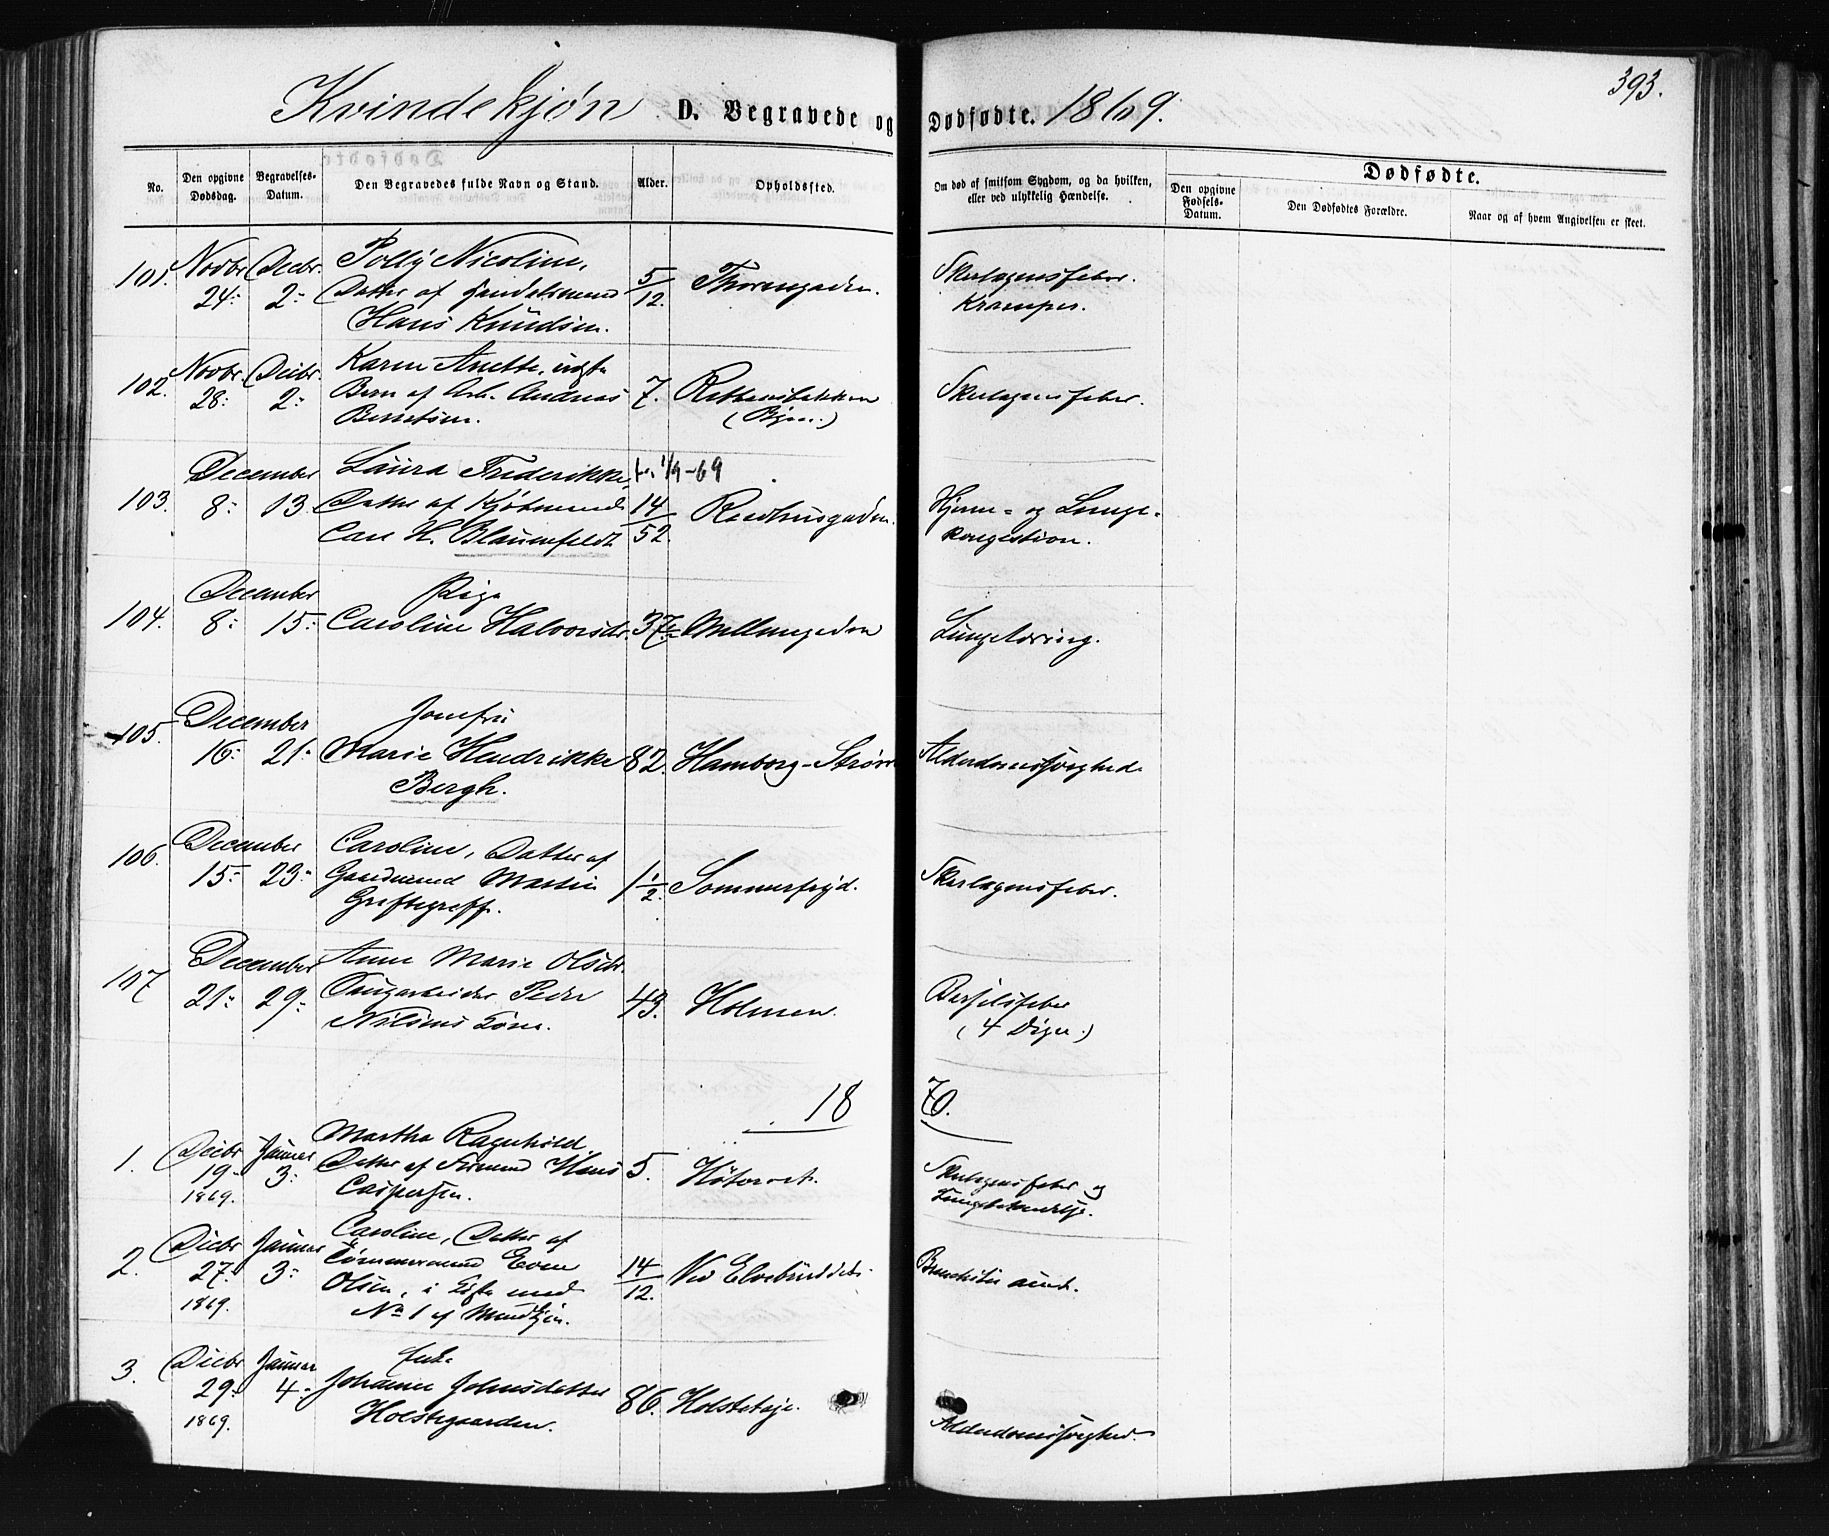 393.
Kvindekjøn D. Begravede og Dødfødte. 1869.
No.
Den opgivne Dødsdag.
Begravelses-Datum.
Den Begravedes fulde Navn og Stand.
Alder.
Opholdssted.
Om død af smitsom Sygdom, og da hvilken, eller ved ulykkelig Hændelse.
Dødfødte.
Den opgivne Fødsels-Datum.
Den Dødfødtes Forældre.
Naar og af hvem Angivelsen er skeet.
101. Novbr 24: Decbr. 2: Polly Nicoline, 5/12. Skarlagensfeber.
Datter af Handelsmand Kramper.
Hans Knudsen.
102. Novbr 28: Decbr. 2: Karen Anette, 7. Skarlagensfeber.
Barn af Arb. Andreas
Berntsen.
103. December 8: 13. Laura Frederikke, f. 1/9-69
Datter af Kjøbmand 14/52. Raadhusgaden. Hjerne- og Lunge-
Carl H. Blauenfeldt kongestion.
104. December 8: 15: Pige
Caroline Halvorsdr. 37 Mellemgaden
105. December 16: 21: Jomfru
Marie Hendrikke 82. Hamborg-Strøm Alderdomssvaghed.
Bergh.
106. December 15: 23: Caroline, Datter af 1 1/2. Sommerfryd. Skarlagensfeber.
Gaardmand Martin
107 December 21: 29: Anne Marie Olsdr. 43. Holmen. Barselsfeber
Peder (4 Dage.)
Nilsens Kone.
18 70.
1. Decbr 19 1869. Januar 3: Martha Ragnhild, 5. Skarlagensfeber og
Datter af Hans Lungebetændelse.
Caspersen.
2. Decbr 27. 1869. Januar 3: Caroline, Datter af 14/12. Ved Elvebruddet.
Tømmermand Even
Olsen, i Kiste med
No 1 af Mandkjøn.
3. Decbr 29: 1869. Januar 4: Enke
Johanne Johnsdatter 86. Alderdomssvaghed.
Holstegaarden.